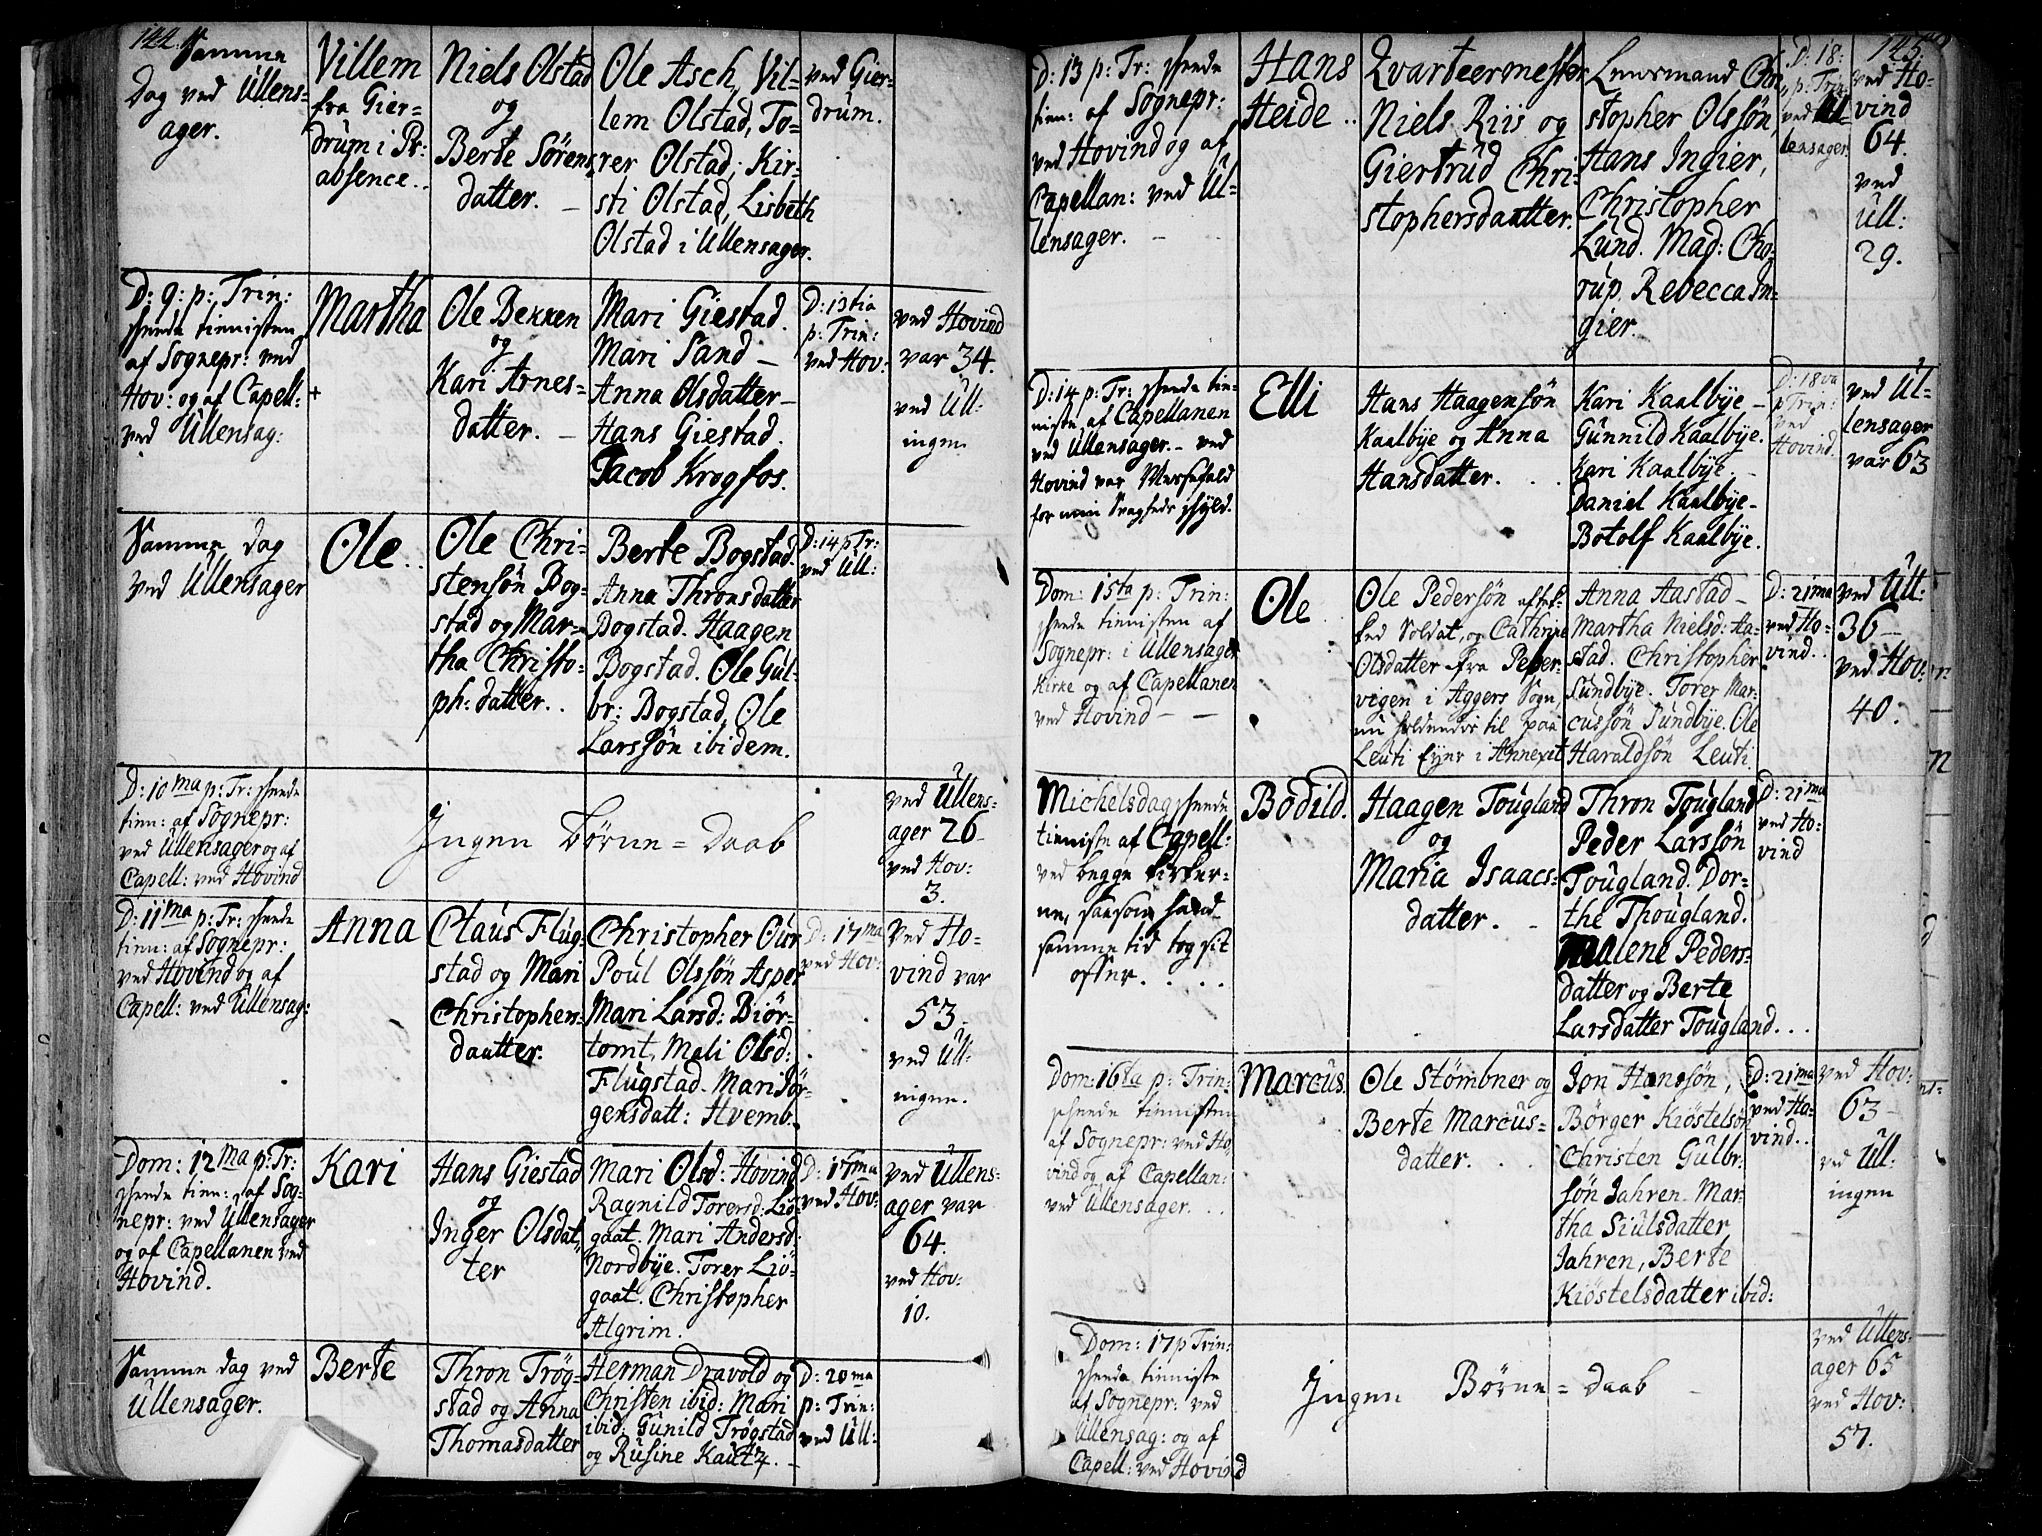 144.
Samme
Dag ved Ullens-
ager.
Villem
fra Gier-
drum i Pr:
absence..
Niels Olstad
og
Berte Sörens
datter. –
Ole Asch, Vil-
lem Olstad, To-
rer Olstad, Kir-
sti Olstad, Lisbeth
Olstad i Ullensager.
ved Gier-
drum.
D: 9: p: Trin:
skeede tienisten
af Sognepr: ved
Hov: og af Capell:
ved Ullensag:
Martha
+
Ole Bekken
og
Kari Arnes-
datter. –
Mari Giestad.
Mari Sand –
Anna Olsdatter –
Hans Giestad.
Jacob Krogfos.
D: 13tia
p: Trin:
ved Hov:
ved Hovind
var 34.
ved Ull:
ingen
Samme dag
ved Ullensager
Ole..
Ole Chri-
stensön Bog-
stad og Mar-
tha Christo-
ph: datter..
Berte Bogstad.
Anna Thronsdatter
Bogstad. Haagen
Bogstad. Ole Gul-
br: Bogstad, Ole
Larssön ibidem.
D: 14 p Tr:
ved Ull:
D: 10ma p: Tr: skeede
tien: af Sognepr:
ved Ullensager og af
Capell: ved Hovind
Ingen Börne = Daab
ved Ullens-
ager 26
ved Hov:
3.
D: 11ma p: Tr: skeede
tien: af Sognepr:
ved Hovind og af
Capell: ved Ullensag:
Anna
Claus Flug-
stad og Mari
Christophers-
daatter.
Christopher Our
Poul Olssön Asper
Mari Larsd: Biör-
tomt, Mali Olsd:
Flugstad. Mari Jör-
gensdatt: Hvemb.
D: 17ma
ved Hov:
Ved Ho-
vind var
53
ved Ull:
ingen.
Dom: 12ma p: Tr:
skeede tien: af Sog-
nepr: ved Ullensager
og af Capellanen ved
Hovind.
Kari
Hans Giestad
og
Inger Olsdat,
ter
Mari Olsd: Hovind
Ragnild Torersd: Liö-
gaat. Mari Andersd:
Nordbÿe. Torer Liö-
gaat. Christopher
Algrim.
D: 17ma
ved Hov:
ved Ullens-
ager var
64.
ved Hov:
10.
Samme dag ved
Ullensager.
Berte
Thron Trög-
stad og Anna
Thomasdatter
Herman Dravold og
Christen ibid: Mari
ibid: Gunild Trögstad
og Rusine Kautz. –
D: 20ma
p: Trin:
ved Ull:
145
D: 13 p: Tr: skeede
tien: af Sognepr:
ved Hovind og af
Capellan: ved Ul-
lensager. –
Hans
Heide..
Qvarteermester
Niels Riis og
Giertrud Chri-
stophersdaatter.
Lensmand Chri
stopher Olssön,
Hans Ingier,
Christopher
Lund. Mad: Cho-
rup. Rebecca In-
gier.
D: 18:
p: Trin
ved Ul-
lensager.
ved Ho-
vind
64.
ved
Ull:
29.
D: 14 p: Tr: skeede tie-
niste af Capellanen
ved Ullensager. – ved
Hovind var Messefald
for min Svagheds skÿld.
Elli
Hans Haagensön
Kaalbÿe og Anna
Hansdatter. . .
Kari Kaalbÿe –
Gunnild Kaalbÿe.
Kari Kaalbÿe. –
Daniel Kaalbÿe –
Botolf Kaalbÿe.
D: 18va
p Trin:
ved
Hovind.
ved Ul-
lensager
var 63
Dom: 15ta p: Trin:
skeede tienisten af
Sognepr: i Ullensager
Kirke og af Capellanen
ved Hovind – –
Ole
Ole Pedersön aftak-
ked Soldat, og Cathrine
Olsdatter fra Peber-
vigen i Aggers Sogn,
nu holdendes til paa
Leuti Eÿer i Annexet
Anna Aastad –
Martha Nielsd: Aa-
stad. Christopher
Sundbÿe. Torer Mar-
cussön Sundbÿe. Ole
Haraldsön Leuti.
D: 21ma
ved Ho-
vind..
ved Ull:
36 –
ved Hov:
40.
Michelsdag skeede
tieniste af Capell:
ved begge Kirker-
ne, saasom hand
samme tid tog sit
offer. . . . .
Bodild.
Haagen Tougland
og
Maria Isaacs-
datter. –
Thron Tougland
Peder Larssön
Tougland. Dor-
the Thougland.
Malene Peders-
datter og Berte
Larsdatter Tougland...
D: 21ma
ved Ho-
vind
Dom: 16ta p: Trin:
skeede tienisten
af Sognepr: ved Ho,
vind og af Capellan:
ved Ullensager. . .
Marcus.
Ole Stömbner og
Berte Marcus-
datter. . .
Jon Hanssön,
Börger Kiöstelsön
Christen Gulbr:
sön Jahren. Mar-
tha Siulsdatter
Jahren, Berte
Kiöstelsdatter ibid:
D: 21ma
ved Ho-
vind..
ved Hov:
63 –
ved Ull:
ingen
Dom: 17 p Trin:
skeede tieniste
af Sognepr: ved
Ullensag: og af
Capell: ved Hovind
Ingen Börne = daab –
ved Ullens-
ager 65
ved Hov:
57.